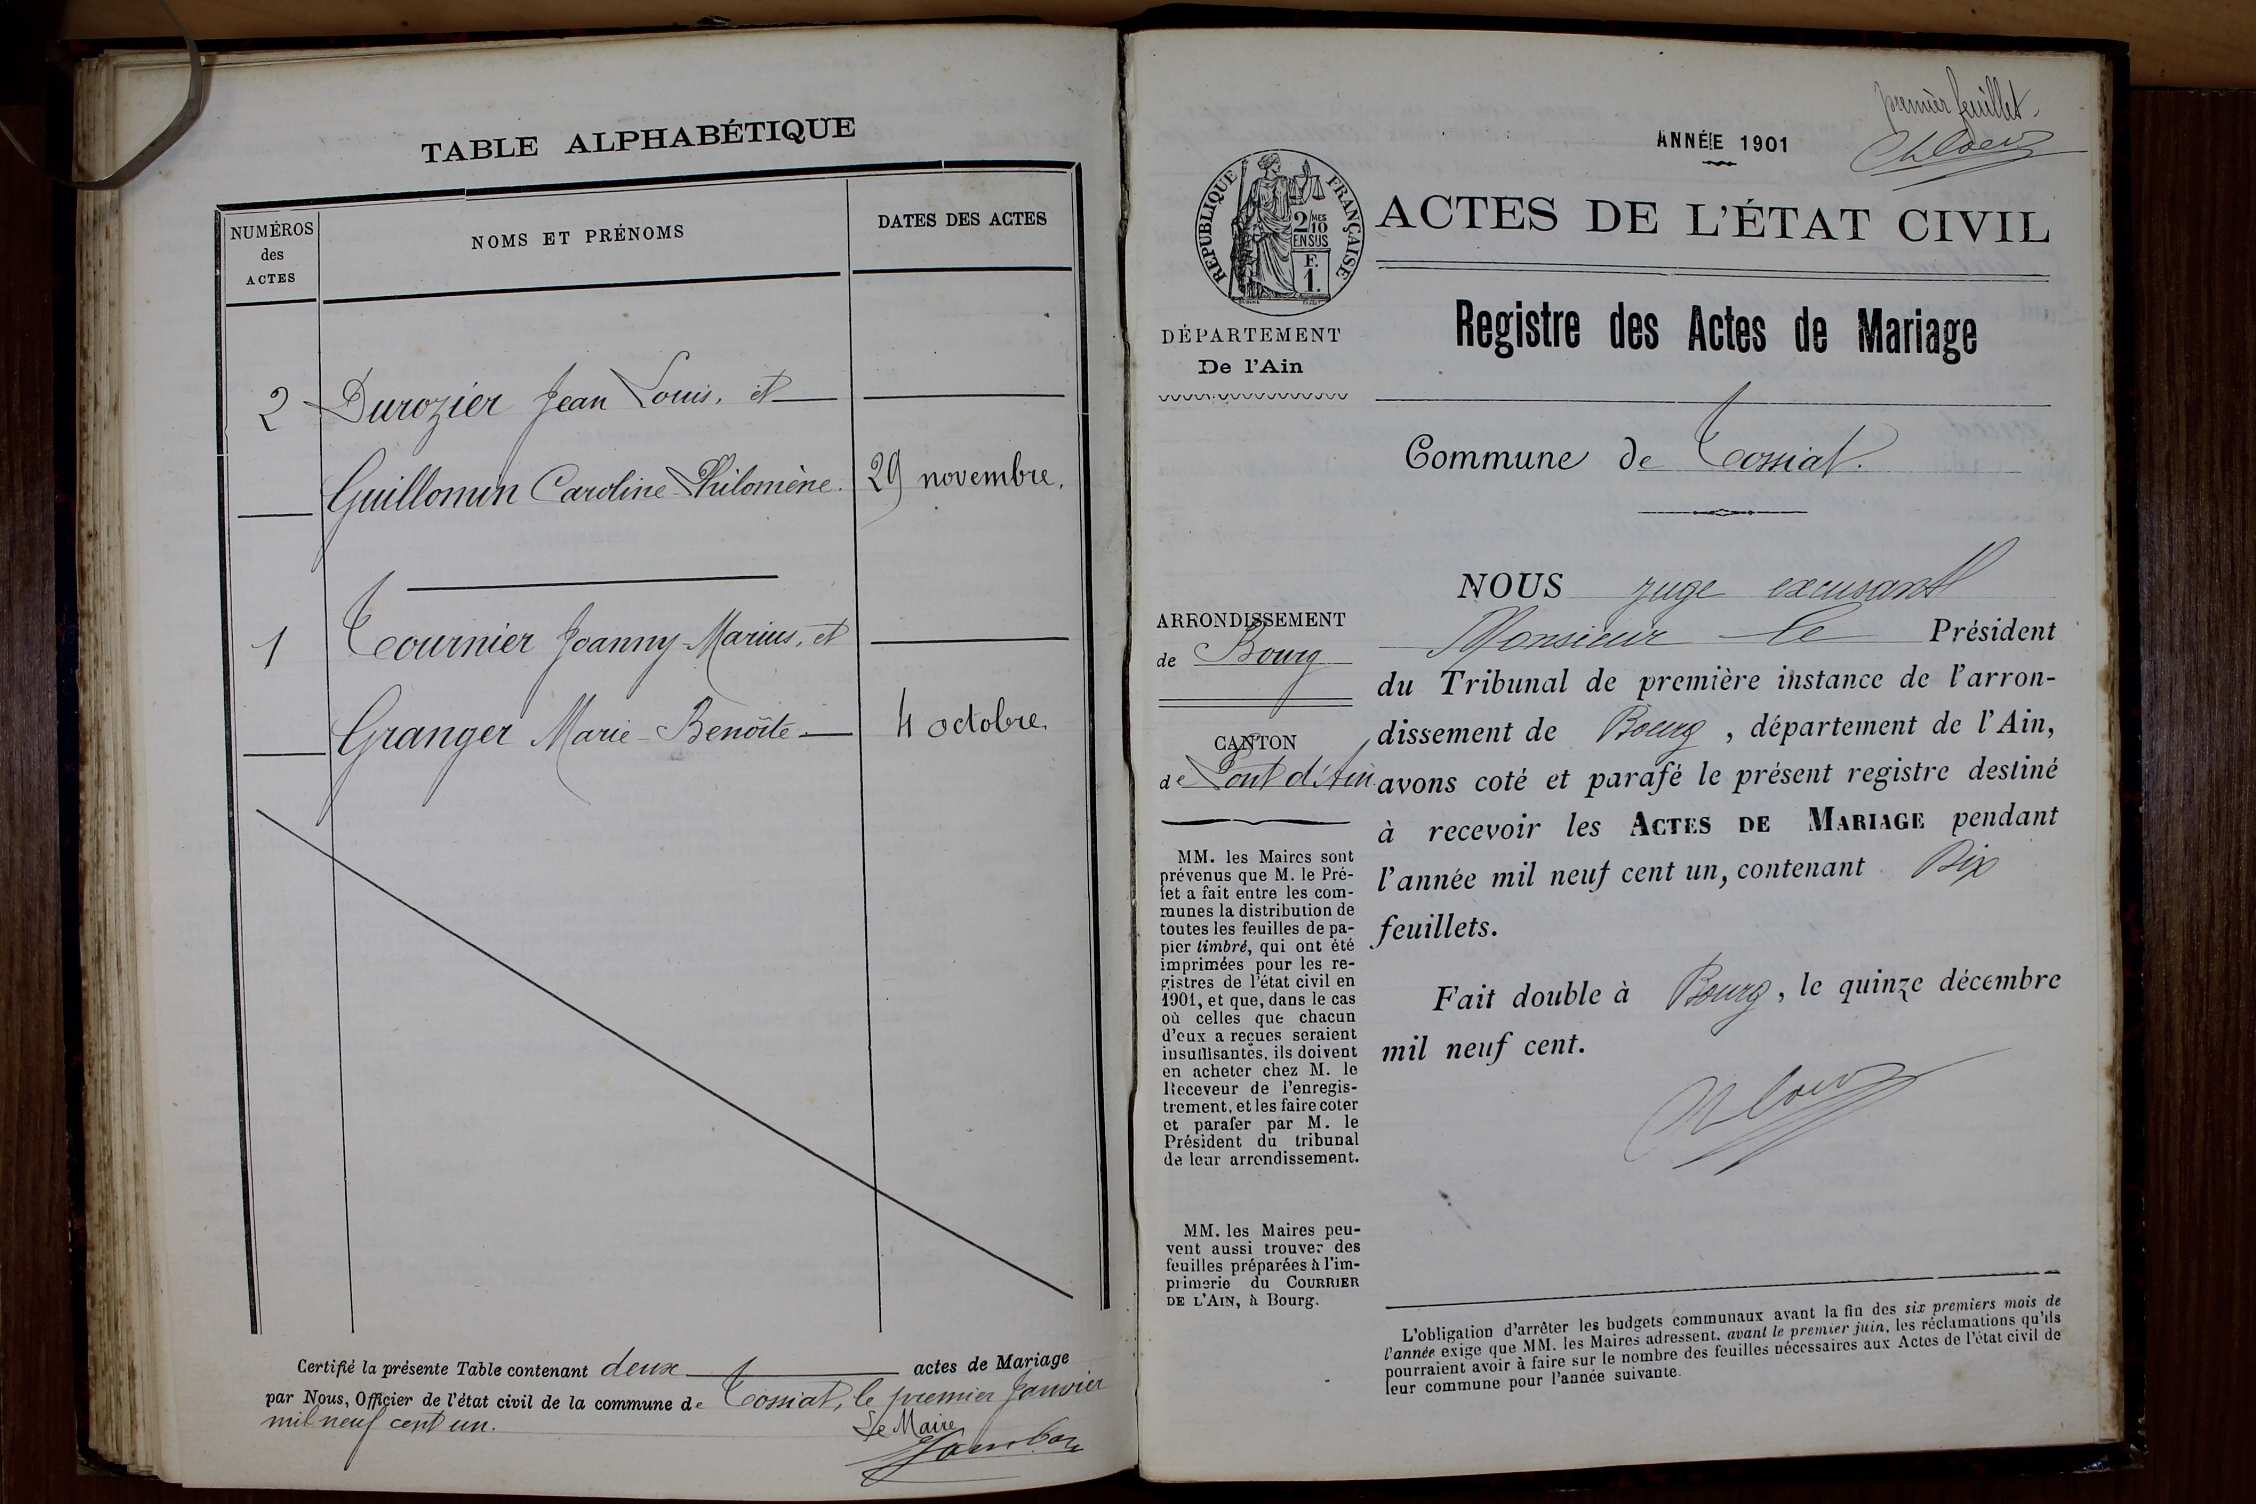 TABLE ALPHABÉTIQUE
NUMÉROS
des
ACTES
NOMS ET PRÉNOMS
DATES DES ACTES
2 Durozier Jean Louis, et
Guillomin Caroline Philomène. 29 novembre.
1 Tournier Joanny-Marius, et
Granger Marie-Benoîte 4 octobre.
Certifié la présente Table contenant deux actes de Mariage
par Nous, Officier de l'état civil de la commune de Tossiat, le premier Janvier
mil neuf cent un.
Le Maire
premier feuillet.
ANNÉE 1901
RÉPUBLIQUE FRANÇAISE
2 MES
10
EN SUS
F.
1.
ACTES DE L'ÉTAT CIVIL
DÉPARTEMENT
De l'Ain
Registre des Actes de Mariage
Commune de Tossiat.
ARRONDISSEMENT
de Bourg
CANTON
de Pont d'Ain
MM. les Maires sont
prévenus que M. le Pré-
fet a fait entre les com-
munes la distribution de
toutes les feuilles de pa-
pier timbré, qui ont été
imprimées pour les re-
gistres de l'état civil en
1901, et que, dans le cas
où celles que chacun
d'eux a reçues seraient
insuffisantes, ils doivent
en acheter chez M. le
Receveur de l'enregis-
trement, et les faire coter
et parafer par M. le
Président du tribunal
de leur arrondissement.
MM. les Maires peu-
vent aussi trouver des
feuilles préparées à l'im-
primerie du COURRIER
DE L'AIN, à Bourg.
NOUS juge excusant
Monsieur le Président
du Tribunal de première instance de l'arron-
dissement de Bourg, département de l'Ain,
avons coté et parafé le présent registre destiné
à recevoir les ACTES DE MARIAGE pendant
l'année mil neuf cent un, contenant Dix
feuillets.
Fait double à Bourg, le quinze décembre
mil neuf cent.
L'obligation d'arrêter les budgets communaux avant la fin des six premiers mois de
l'année exige que MM. les Maires adressent, avant le premier juin, les réclamations qu'ils
pourraient avoir à faire sur le nombre des feuilles nécessaires aux Actes de l'état civil de
leur commune pour l'année suivante.